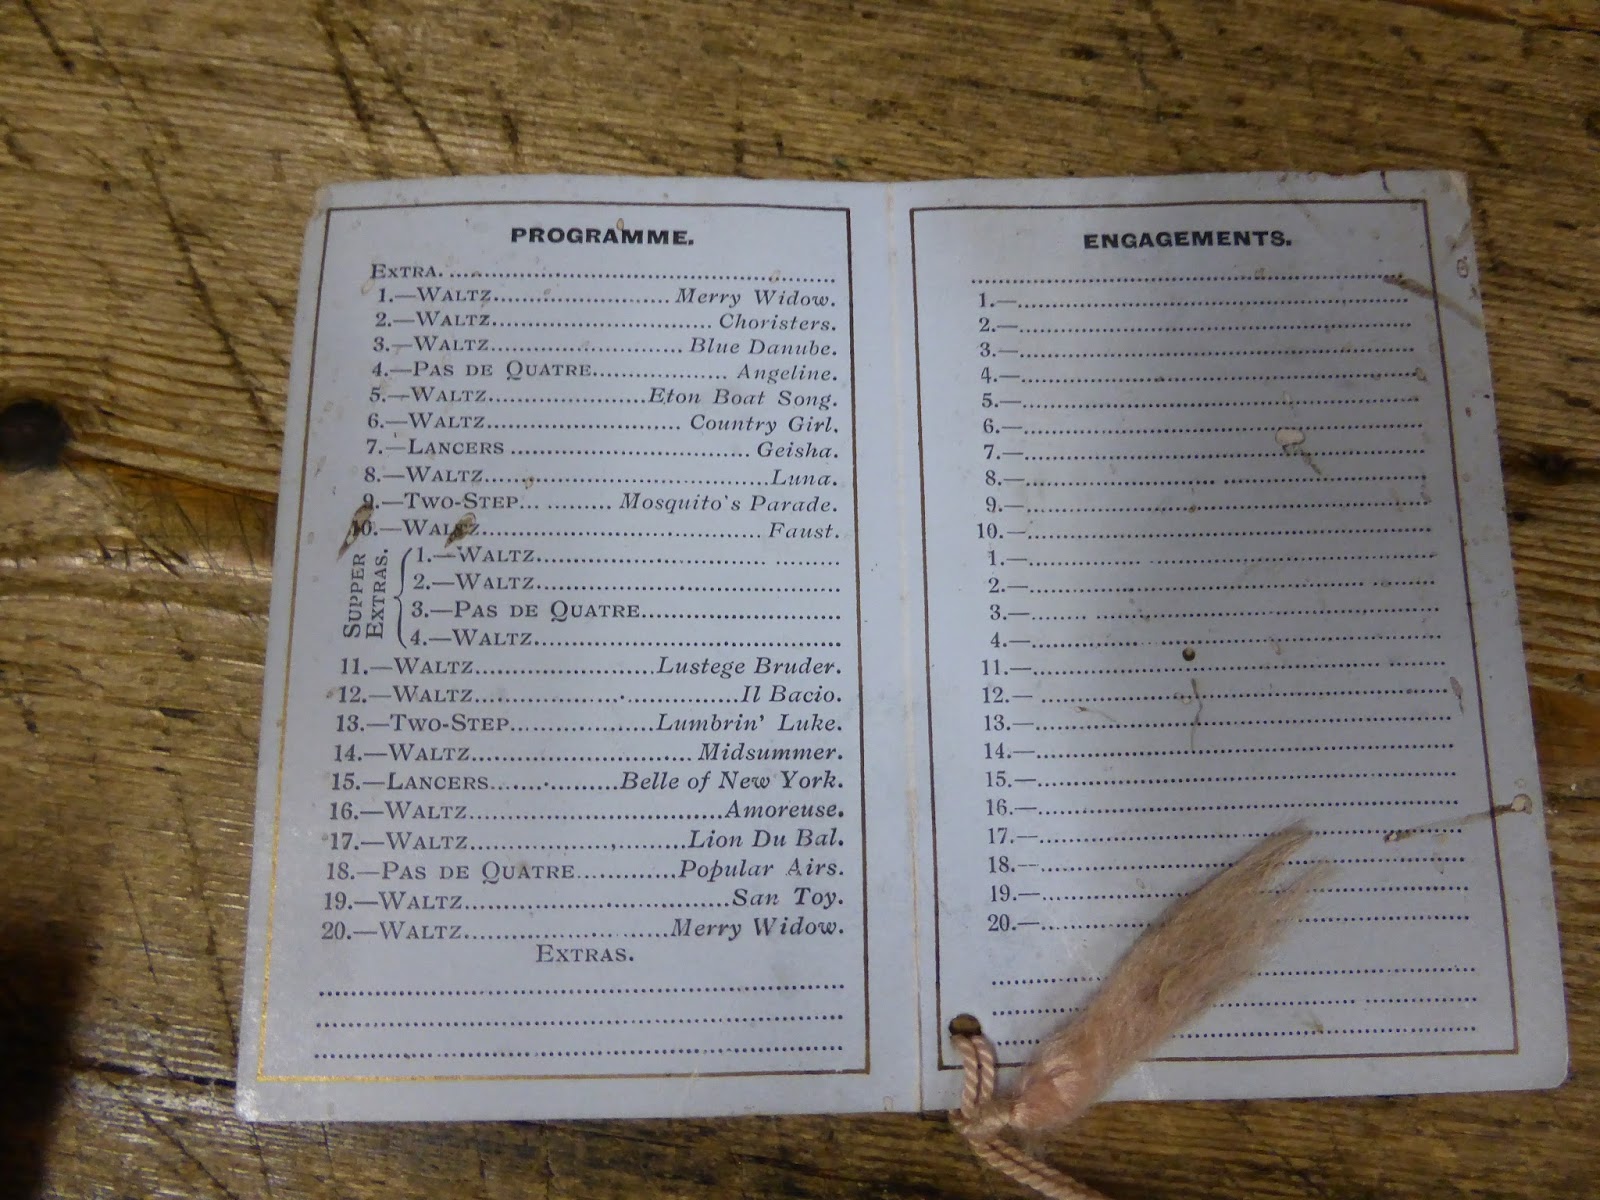 PROGRAMME.
EXTRA. ........................................
1.—WALTZ........................ Merry Widow.
2.—WALTZ.............................. Choristers.
3.—WALTZ.......................... Blue Danube.
4.—PAS DE QUATRE.................. Angeline.
5.—WALTZ......................Eton Boat Song.
6.—WALTZ.......................... Country Girl.
7.—LANCERS ................................ Geisha.
8.—WALTZ.......................................Luna.
9.—TWO-STEP... ......... Mosquito's Parade.
10.—WALTZ...................................... Faust.
SUPPER EXTRAS.
1.—WALTZ.............................. .........
2.—WALTZ........................................
3.—PAS DE QUATRE..........................
4.—WALTZ........................................
11.—WALTZ.........................Lustege Bruder.
12.—WALTZ....................................Il Bacio.
13.—TWO-STEP....................Lumbrin' Luke.
14.—WALTZ...............................Midsummer.
15.—LANCERS..................Belle of New York.
16.—WALTZ...................................Amoreuse.
17.—WALTZ..............................Lion Du Bal.
18.—PAS DE QUATRE.............Popular Airs.
19.—WALTZ....................................San Toy.
20.—WALTZ............................Merry Widow.
EXTRAS.
........................................
........................................
........................................
ENGAGEMENTS.
........................................
1.—........................................
2.—........................................
3.—........................................
4.—........................................
5.—........................................
6.—........................................
7.—........................................
8.—........................................
9.—........................................
10.—........................................
1.—........................................
2.—........................................
3.—........................................
4.—........................................
11.—........................................
12.—........................................
13.—........................................
14.—........................................
15.—........................................
16.—........................................
17.—........................................
18.—........................................
19.—........................................
20.—........................................
........................................
........................................
........................................